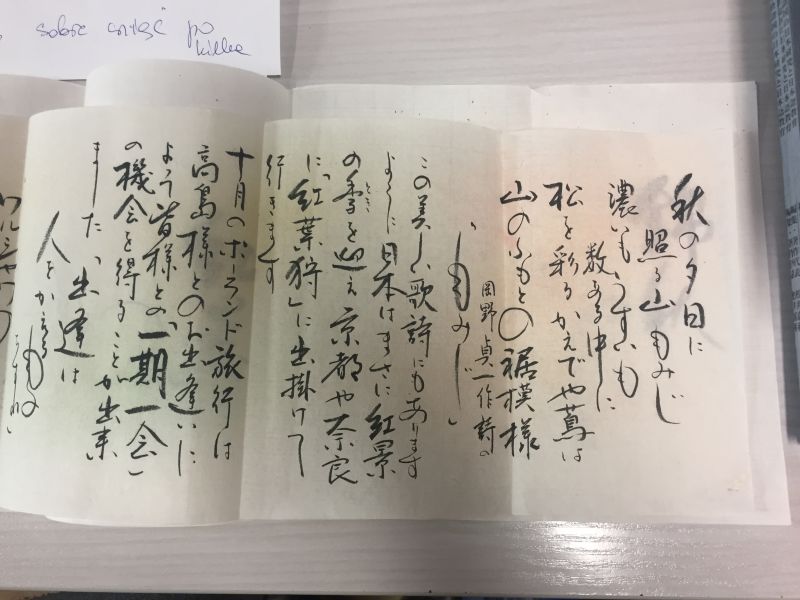 po
秋の夕日に
照る山もみじ
濃いもうすいも
数ある中に
松を彩るかえでや蔦は
山のふもとの裾模様
岡野貞一作詩の
「もみじ」
この美しい歌詩にもあります
ように日本はまさに紅景
の季を迎え京都や奈良
とき
に「紅葉狩」に出掛けて
行きます
十月のポーランド旅行は
高島様とのお出逢いに
よう皆様との「一期一会」
の機会を得ることが出来
ました「出逢は
人をかえる
ワルシャワの